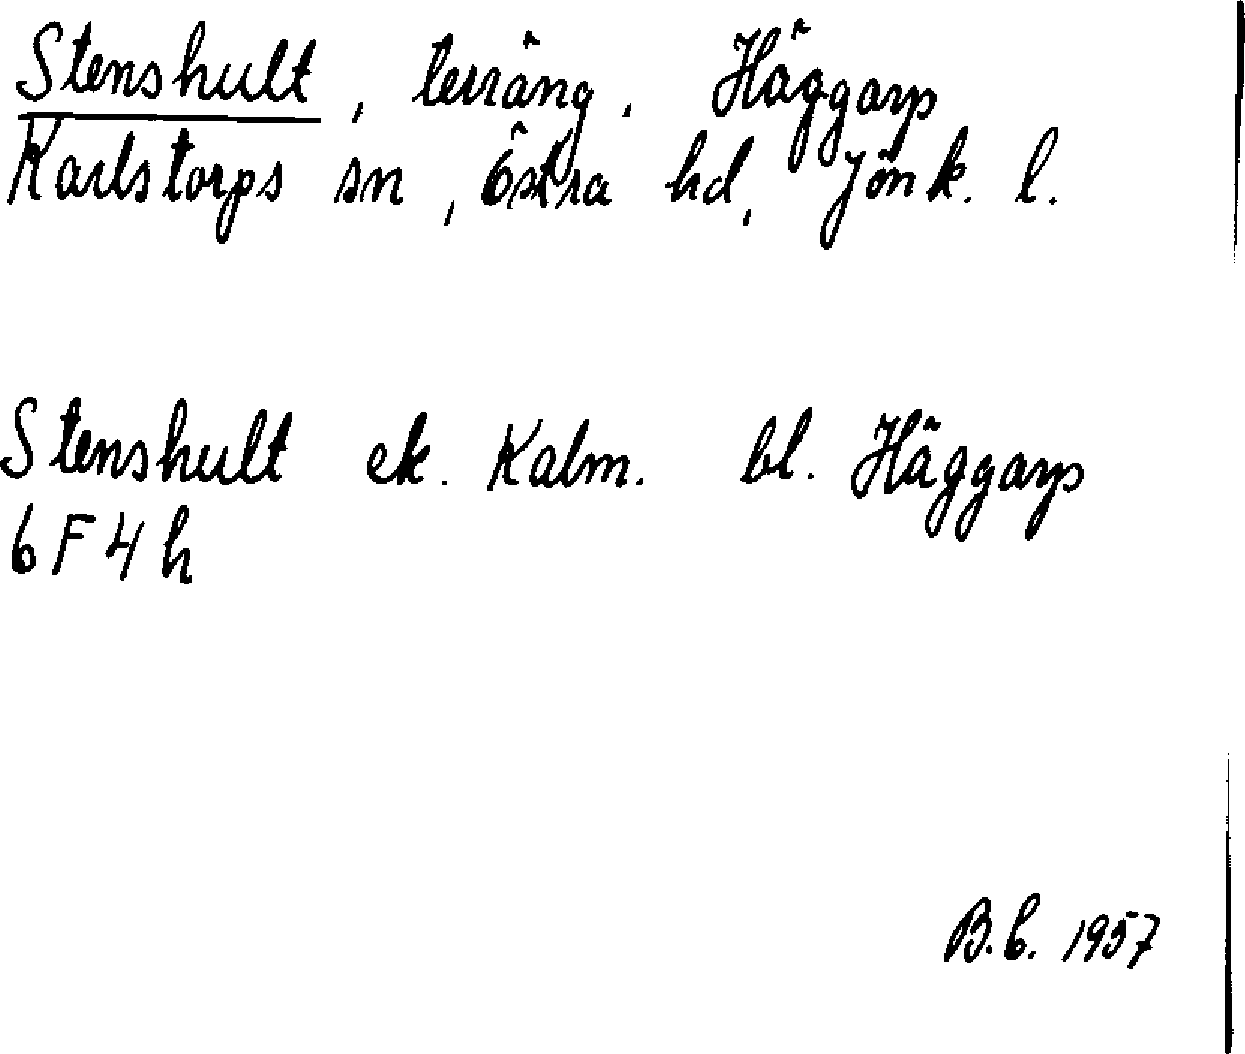 Stenshult, terräng. Häggarp
Karlstorps sn, Östra hd, Jönk. l.
Stenshult ek. Kalm. bl. Häggarp
6 F 4 h
B.b. 1957